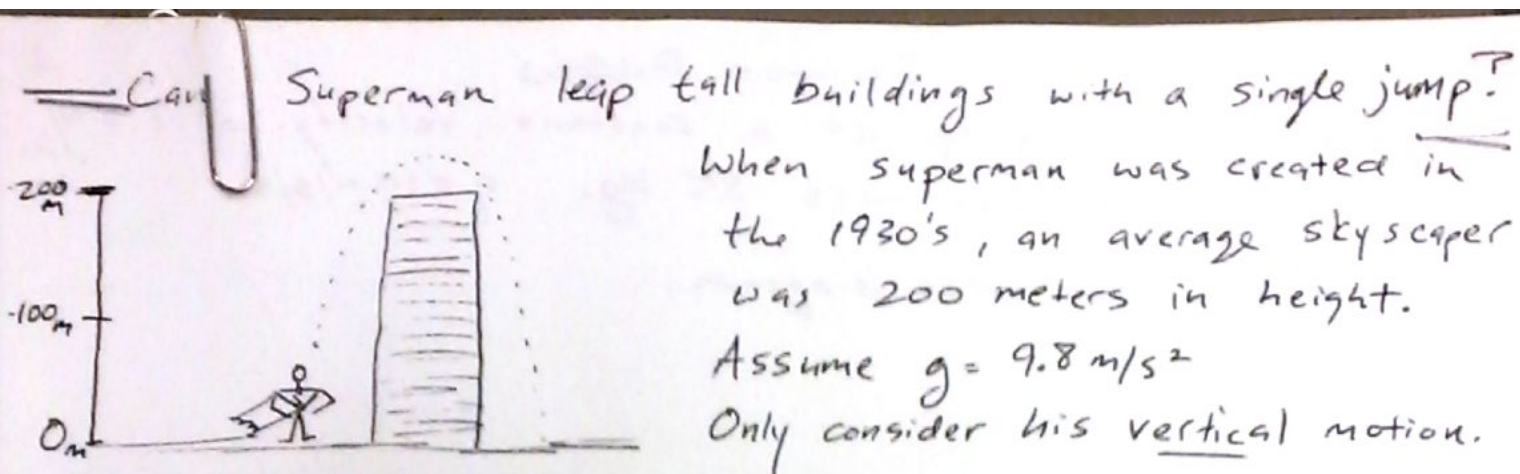 Can Superman leap tall buildings with a single jump?
When superman was created in
the 1930's, an average skyscaper
was 200 meters in height.
Assume g = 9.8 m/s²
Only consider his vertical motion.
200 m
100 m
0 m